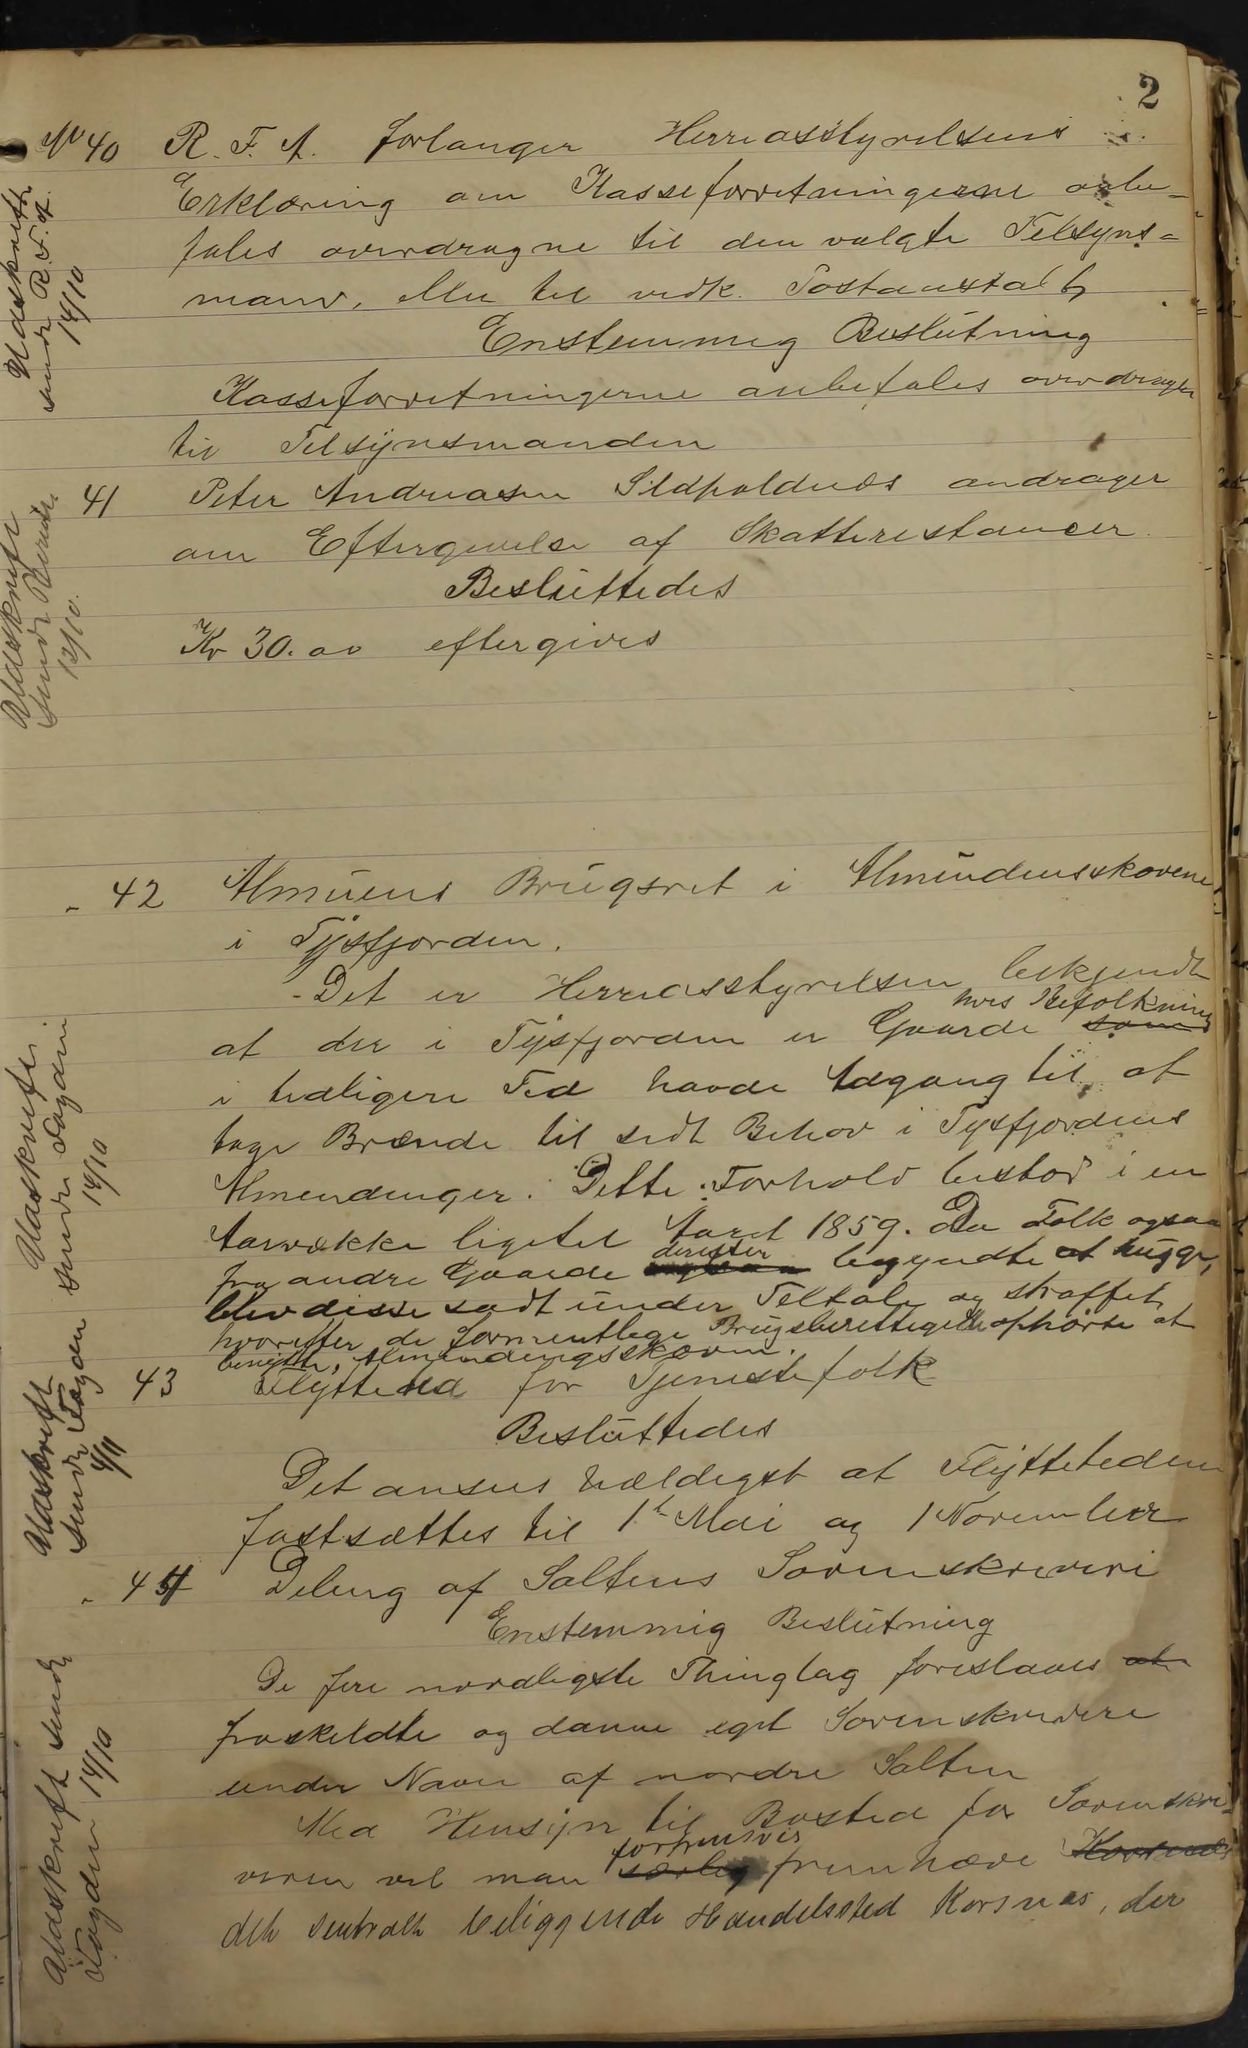 2
No 40 R. F. A. forlanger Herredsstyrelsens
Erklæring om Kasseforretningerne anbe-
fales overdragne til den valgte Tilsyns-
mand, eller til vedk. Postanstalt
Enstemmig Beslutning
Kasseforretningerne anbefales overdragen
til Tilsynsmanden
Udskrift
sendt R. F. A.
14/10
41 Peter Andreasen Sildpoldnes andrager
om Eftergivelse af Skatterestancer.
Besluttedes
Kr 30.00 eftergives
Udskrift
sendt
12/10.
- 42 Almuens Brugsret i Almindensskovene
i Tysfjorden.
- Det er Herredsstyrelsen bekjendt
at der i Tysfjorden er Gaarde som hvis Befolkning
i tidligere Tid havde Adgang til at
tage Brænde til sidt Behov i Tysfjordens
Almendinger. Dette Forhold bestod i en
Aarrække ligetil Aaret 1859. Da Folk ogsaa
fra andre Gaarde derefter begyndte at hugge,
blev disse sadt under Tiltale og straffet,
hvorefter de formentlege Brugsberettigede ophørte at
benytte Almendingsskoven.
Udskrift
sendt Fogden
14/10
43 Flyttetid for Tjenestefolk
Besluttedes
Det ansees heldigst at Flyttetiden
fastsættes til 1ste Mai og 1 November
Udskrift
sendt Fogden
4/11
- 44 Deling af Saltens Sorenskriveri
Enstemmig Beslutning
De fire nordligste Thinglag foreslaaes at
fraskildte og danne eget Sorenskriveri
under Navn af nordre Salten
Med Hensyn til Bosted for Sorenskri-
veren vil man særlig fortrinsvis fremhæve Korsnes
det sentralt beliggende Handelssted Korsnes, der
Udskrift sendt
Fogden 14/10